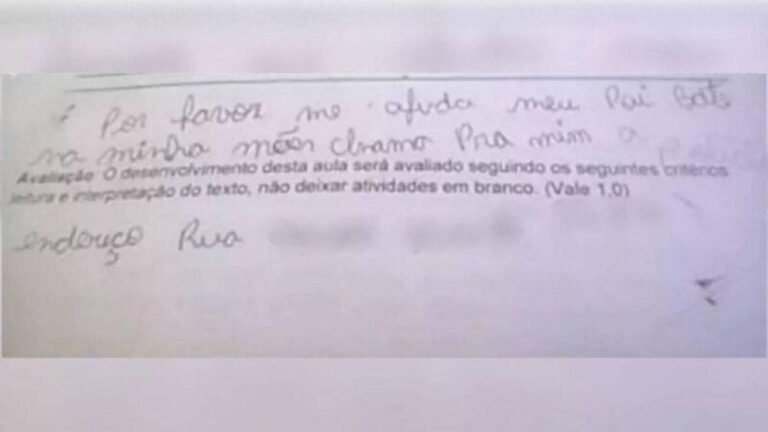 Por favor me ajuda meu Pai Bate
na minha mães chamo Pra mim a
Avaliação O desenvolvimento desta aula será avaliado seguindo os seguintes critérios
leitura e interpretação do texto, não deixar atividades em branco. (Vale 1,0)
endouço Rua